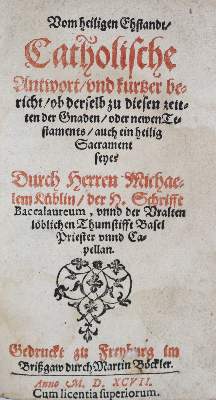 Vom heiligen Ehstandt/
Catholische
Antwort/ vnd kurtzer be-
richt/ ob derselb zu diesen zeit-
ten der Gnaden/ oder newen Te-
staments/ auch ein heilig
Sacrament
seye?
Durch Herren Michae-
lem Küblin/ der H. Schrifft
Baccalaureum, vnnd der Vralten
löblichen Thumstifft Basel
Priester vnnd Ca-
pellan.
Gedruckt zu Freyburg im
Brißgaw durch Martin Böckler.
Anno M. D. XCVII.
Cum licentia superiorum.